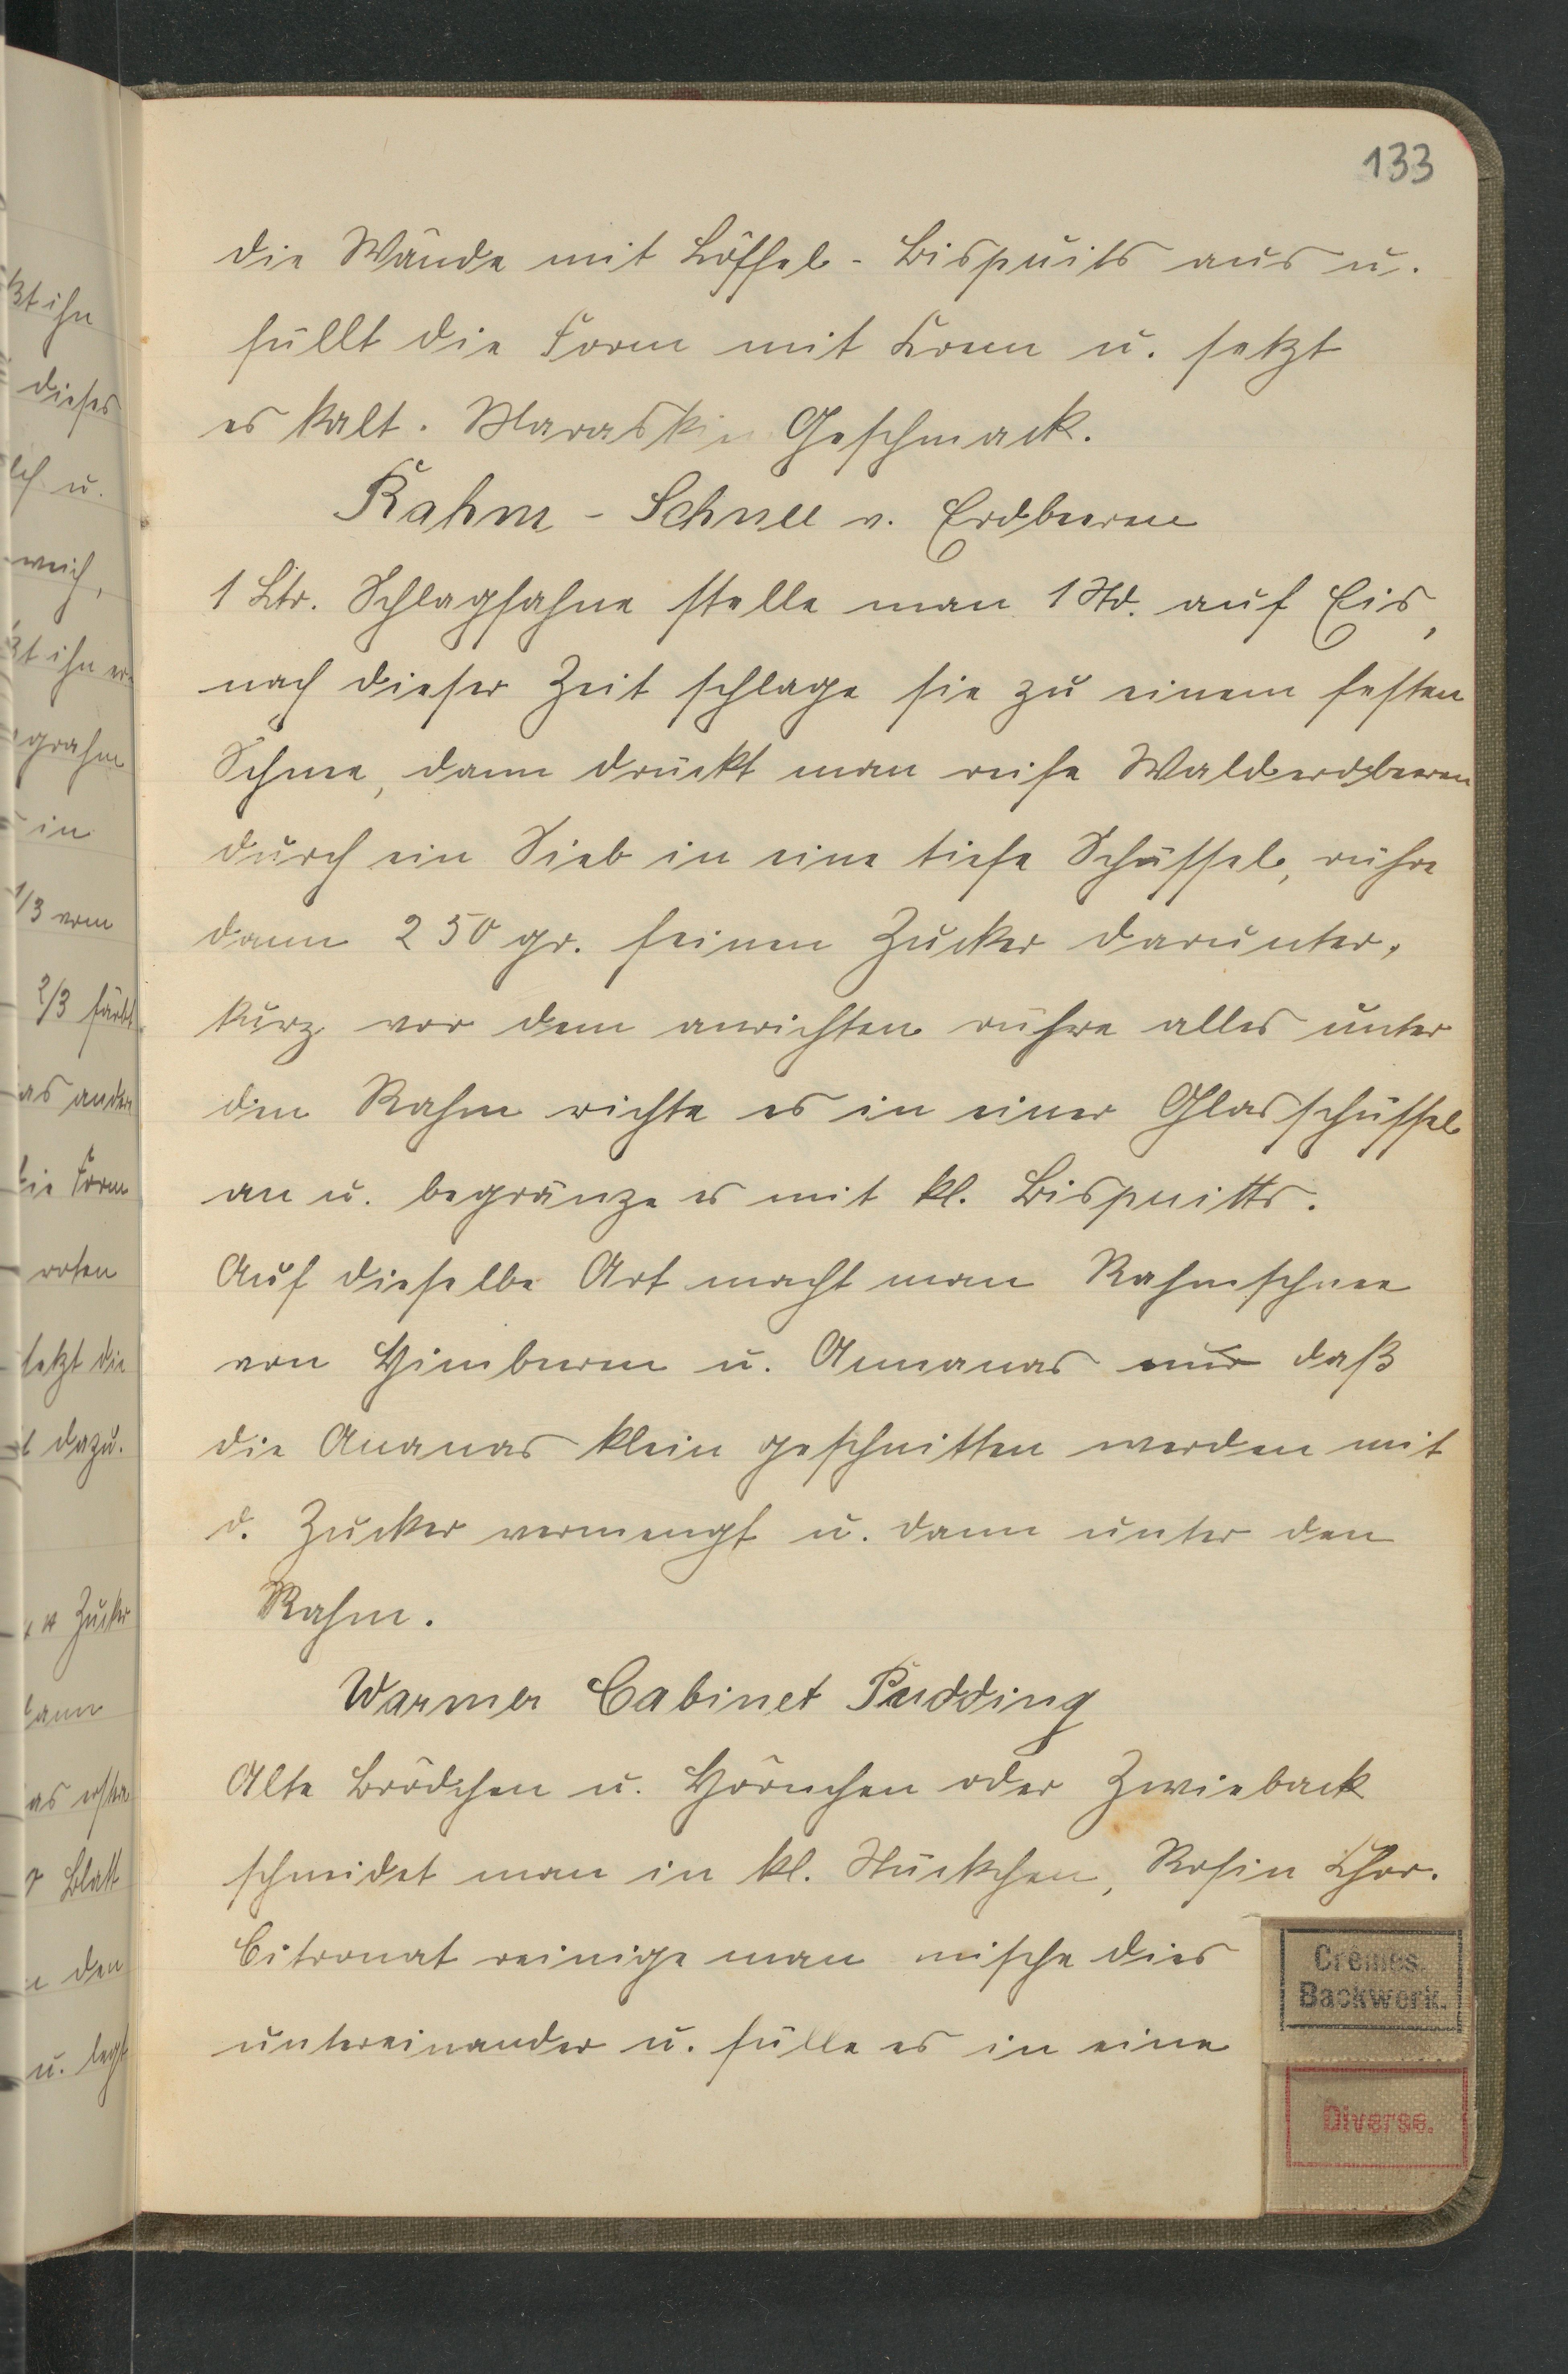 133
die Wände mit Löffel-Bisquits aus u.
füllt die Form mit Krem u. setzt
es kalt. Maraskin Geschmack.
Rahm-Schnee v. Erdbeeren
1 Ltr. Schlagsahne stelle man 1 Std. auf Eis,
nach dieser Zeit schlage sie zu einem festen
Schnee, dann drückt man reife Walderdbeeren
durch ein Sieb in eine tiefe Schüssel, rühre
dann 250 gr. feinen Zucker darunter,
kurz vor dem anrichten rühre alles unter
den Rahm richte es in einer Glasschüssel
an u. begränze es mit kl. Bisquitts.
Auf dieselbe Art macht man Rahmschnee
von Himbeeren u. Annanas nur daß
die Ananas klein geschnitten werden mit
d. Zucker vermengt u. dann unter den
Rahm.
Warmer Cabinet Pudding
Alte Brödchen u. Hörnchen oder Zwieback
schneidet man in kl. Stückchen, Rosin Chor.
Citronat reinige man mische dies
untereinander u. fülle es in eine
Crêmes.
Backwerk.
Diverse.
ßt ihn
dieses
u.
weich,
ßt ihn
in
1/3 vom
2/3 färbt
die Form
roten
setzt die
dazu.
Zucker
dann
Blatt
den
u. legt